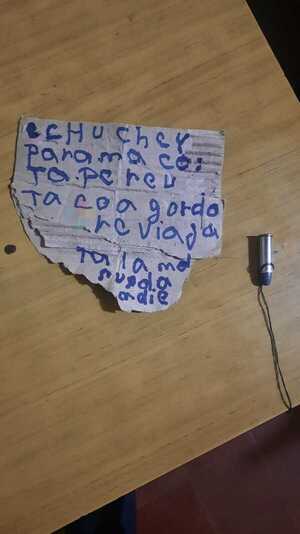 EL HUCHEY
PARAMACO:
TAPEREU
TACOAGORDO
REVIAGA
TALAMA
RUGDA
ADIE